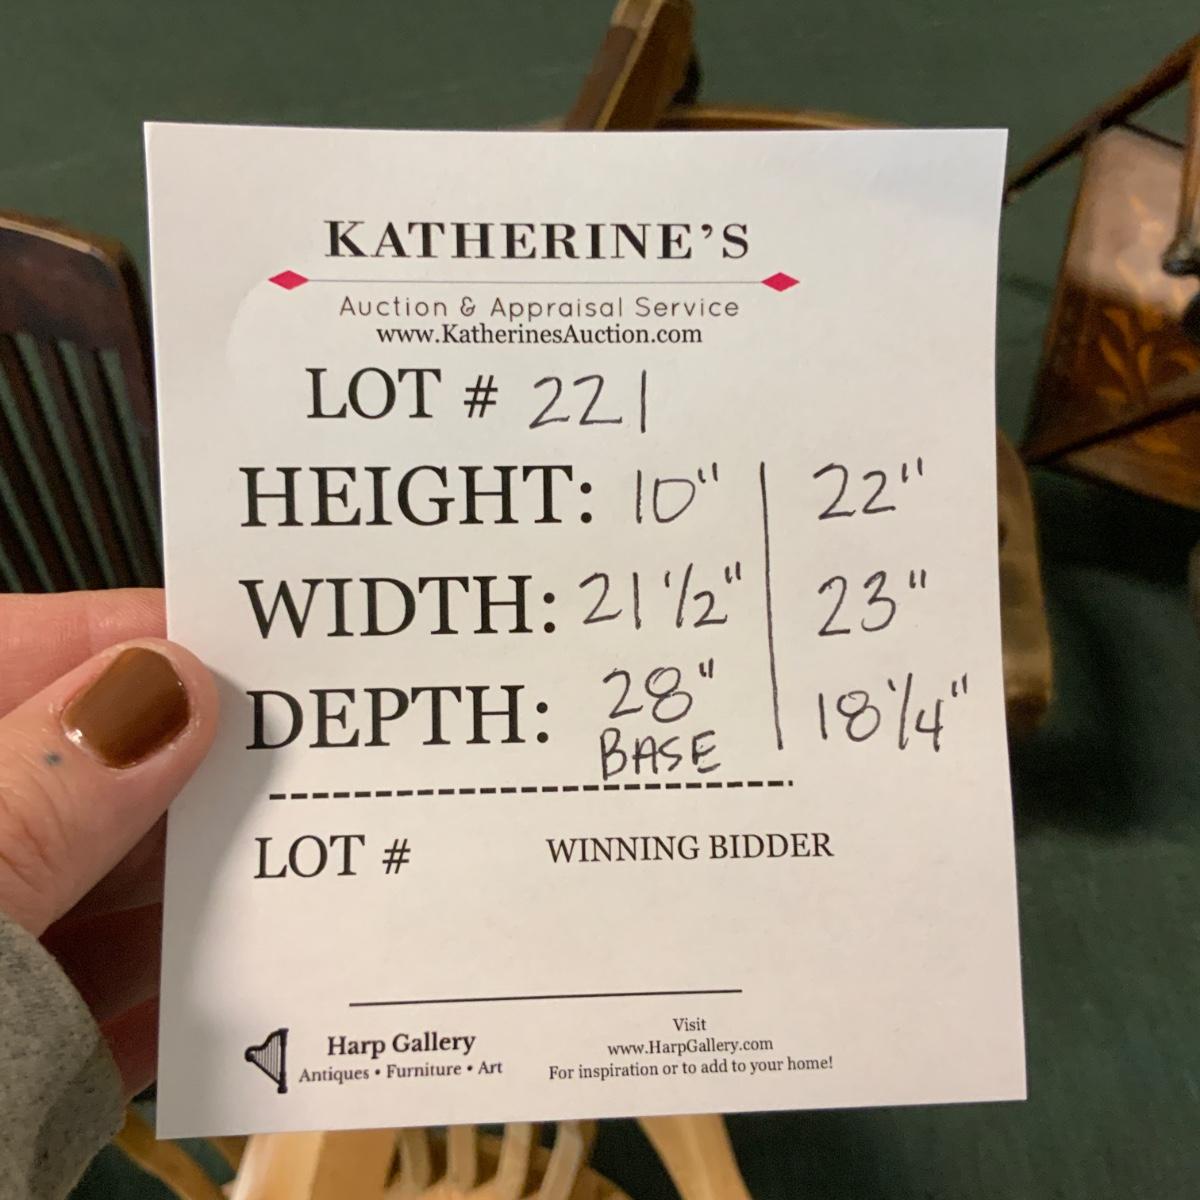 KATHERINE'S
Auction & Appraisal Service
www.KatherinesAuction.com
LOT # 221
HEIGHT: 10" | 22"
WIDTH: 21 1/2" | 23"
DEPTH: 28" | 18 1/4"
BASE
LOT # WINNING BIDDER
Harp Gallery
Antiques • Furniture • Art
Visit
www.HarpGallery.com
For inspiration or to add to your home!